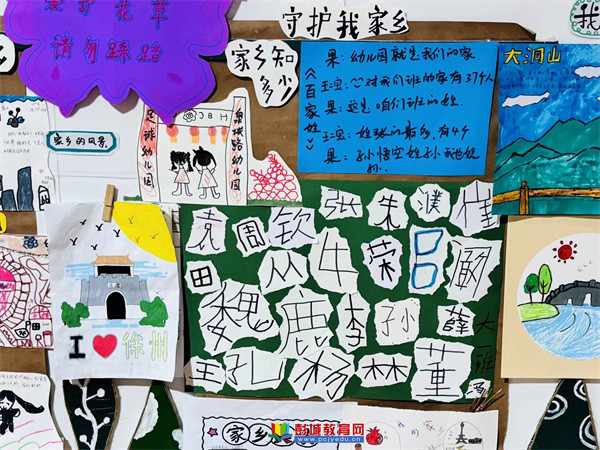 爱护花草
请勿踩踏
守护我家乡
我
家乡知
多少
果:幼儿园就是我们的家
《百家姓》
对我们班的家有37个人
果:这是咱们班的姓
姓张的最多,有4个
果:孙悟空姓孙我也姓
孙.
大洞山
家乡的风景
足球幼儿园
JBH
泉城路幼儿园
张 朱 濮 崔
袁 周 钦
田 从 牛 荣 吕 阚
魏 鹿 李 孙 薛
王 孔 杨 林 董
I 徐州
家乡
彭城教育网
www.pcjyedu.cn